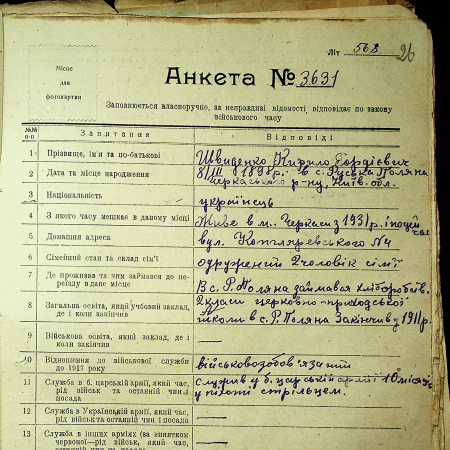 Літ 568
26
Місце
для
фотокартки
Анкета № 3631
Заповнюється власноручно, за неправдиві відомості, відповідає по закону
військового часу
№№ п-п Запитання Відповіді
1 Прізвище, ім'я та по-батькові Швиденко Кирило Гордієвич
2 Дата та місце народження 8/III 1898р. в с. Руська Поляна
Черкаського р-ну, Київ. обл.
3 Національність українець
4 З якого часу мешкає в даному місці Живе в м. Черкаси з 1931 р. і по цей час
5 Домашня адреса вул. Котляревського №4
6 Сімейний стан та склад сім'ї одружений 2 чоловік сім'ї
7 Де проживав та чим займався до пе-
реїзду в дане місце В с. Р. Поляна займався хліборобств.
8 Загальна освіта, який учбовий заклад,
де і коли закінчив 2 класи церковно-приходської
школи в с. Р. Поляна Закінчив у 1911р.
9 Військова освіта, який заклад, де і
коли закінчив —
10 Відношення до військової служби
до 1917 року військовозобов'язаний
11 Служба в б. царській армії, який час,
рід військ та останній чин і
посада служив у б. царській армії 10 місяців
у піхоті стрільцем.
12 Служба в Українській армії, який час,
рід військ та останній чин і посада —
13 Служба в інших арміях (за винятком
червоної—рід військ, який час,
—